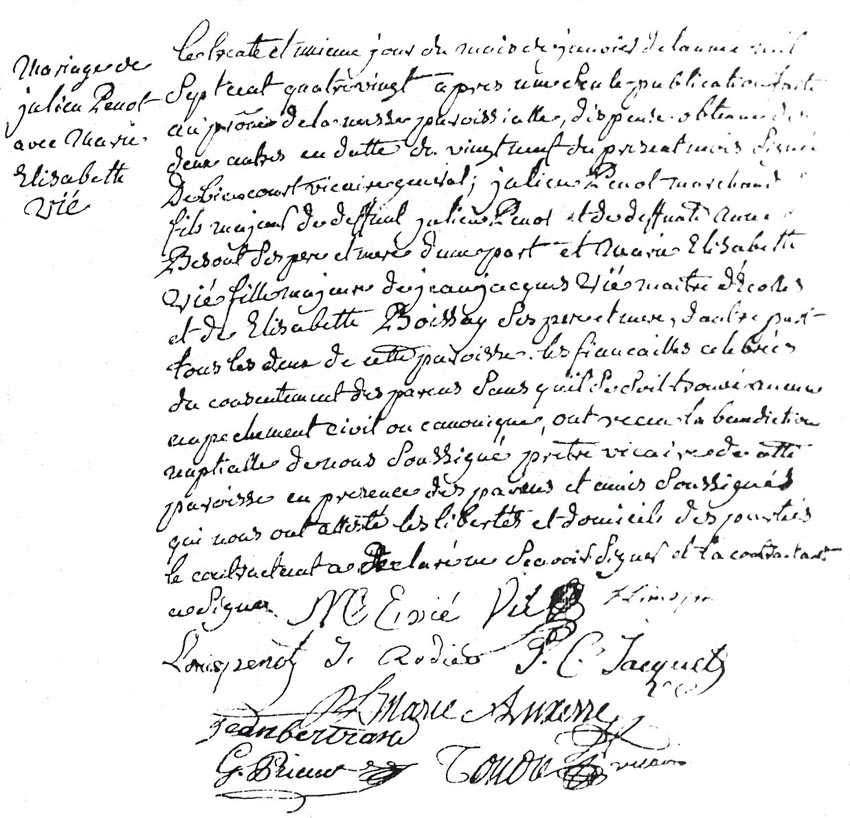 Mariage de
julien Penot
avec Marie
Elisabeth
Vié
le trente et unieme jour du mois de janvier de lanné mil
Sept cent quatrevingt apres une seule publication faite
au prône de la messe paroissialle, dispense obtenue des
deux autres en datte du vingt neuf du present mois Signé
De biencourt vicaire general; julien Penot marchand
fils majeur de deffunt julien Penot et de deffunte anne
Besout Ses pere et mere d'une part et Marie Elisabeth
Vié fille majeure de jean jacques Vié maitre d'écoles
et de Elisabeth Boissay Ses pere et mere, d'autre part
tous les deux de cette paroisse. les fiancailles celebrées
du consentement des parens Sans qu'il Se Soit trouvé aucun
empechement civil ou canonique, ont recu la benediction
nuptialle de nous Soussigné prêtre vicaire de cette
paroisse en presence des parens et amis Soussignés
qui nous ont attesté les libertés et domicile des parties
le contractant a declaré ne Scavoir Signer et la contractante
a Signé. M E vié Vié
Louis penot J. Rodier P. C. Jacquet
Marie Auxerre
Jean bertrand
G. Prieur Tonon vicaire